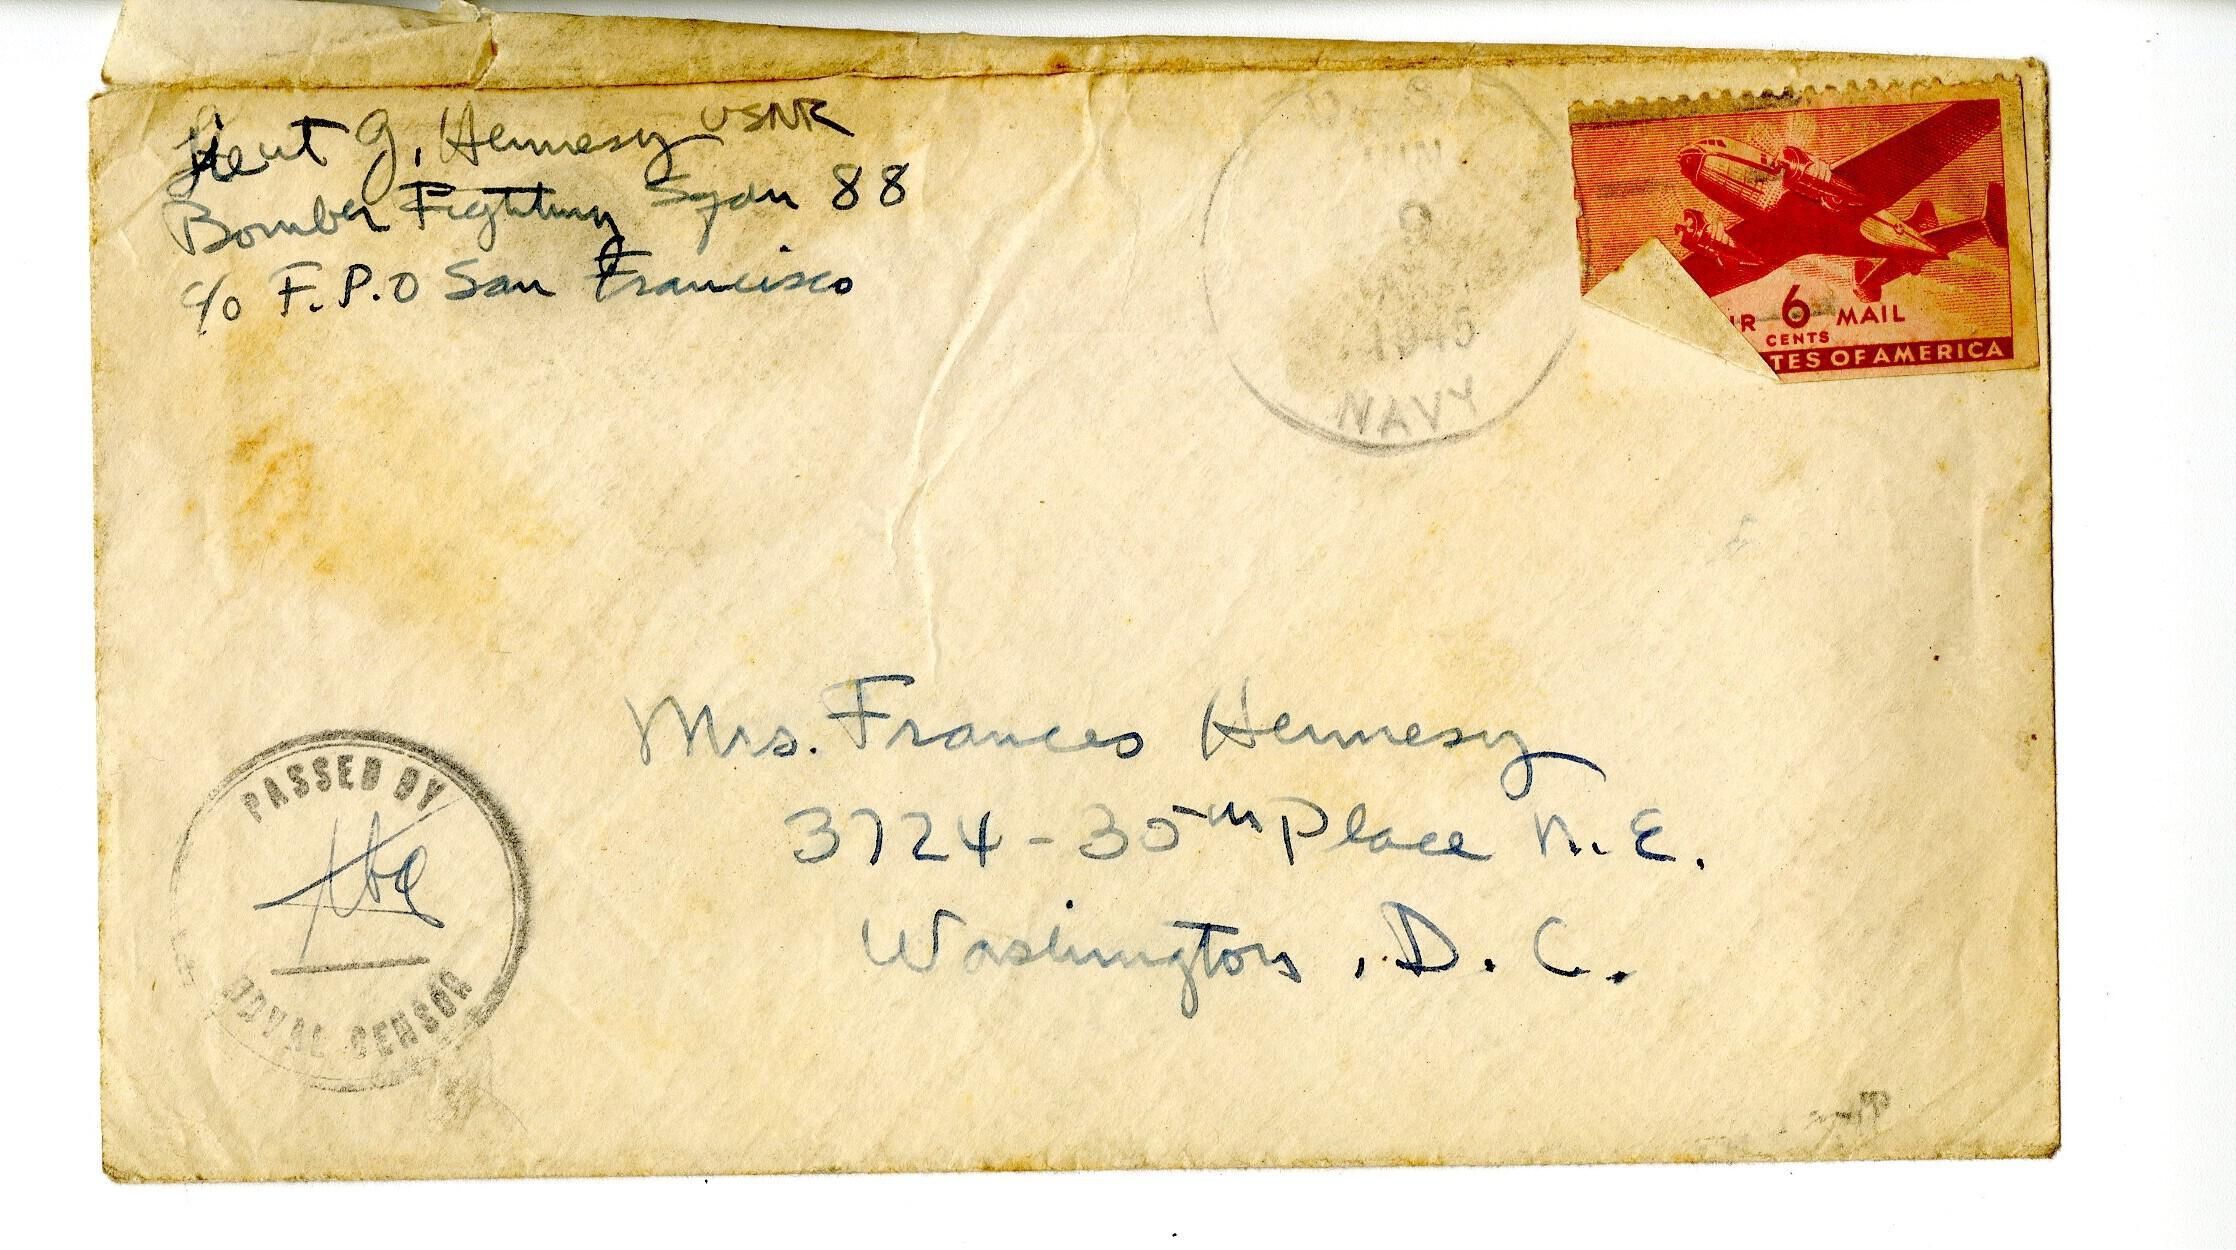 Lieut G. Hennesy USNR
Bomber Fighting Sqdn 88
c/o F.P.O San Francisco
U.S.
JUN
9
1945
NAVY
6
CENTS
MAIL
TES OF AMERICA
Mrs. Frances Hennesy
3724 - 35th Place N.E.
Washington, D.C.
PASSED BY
NAVAL CENSOR